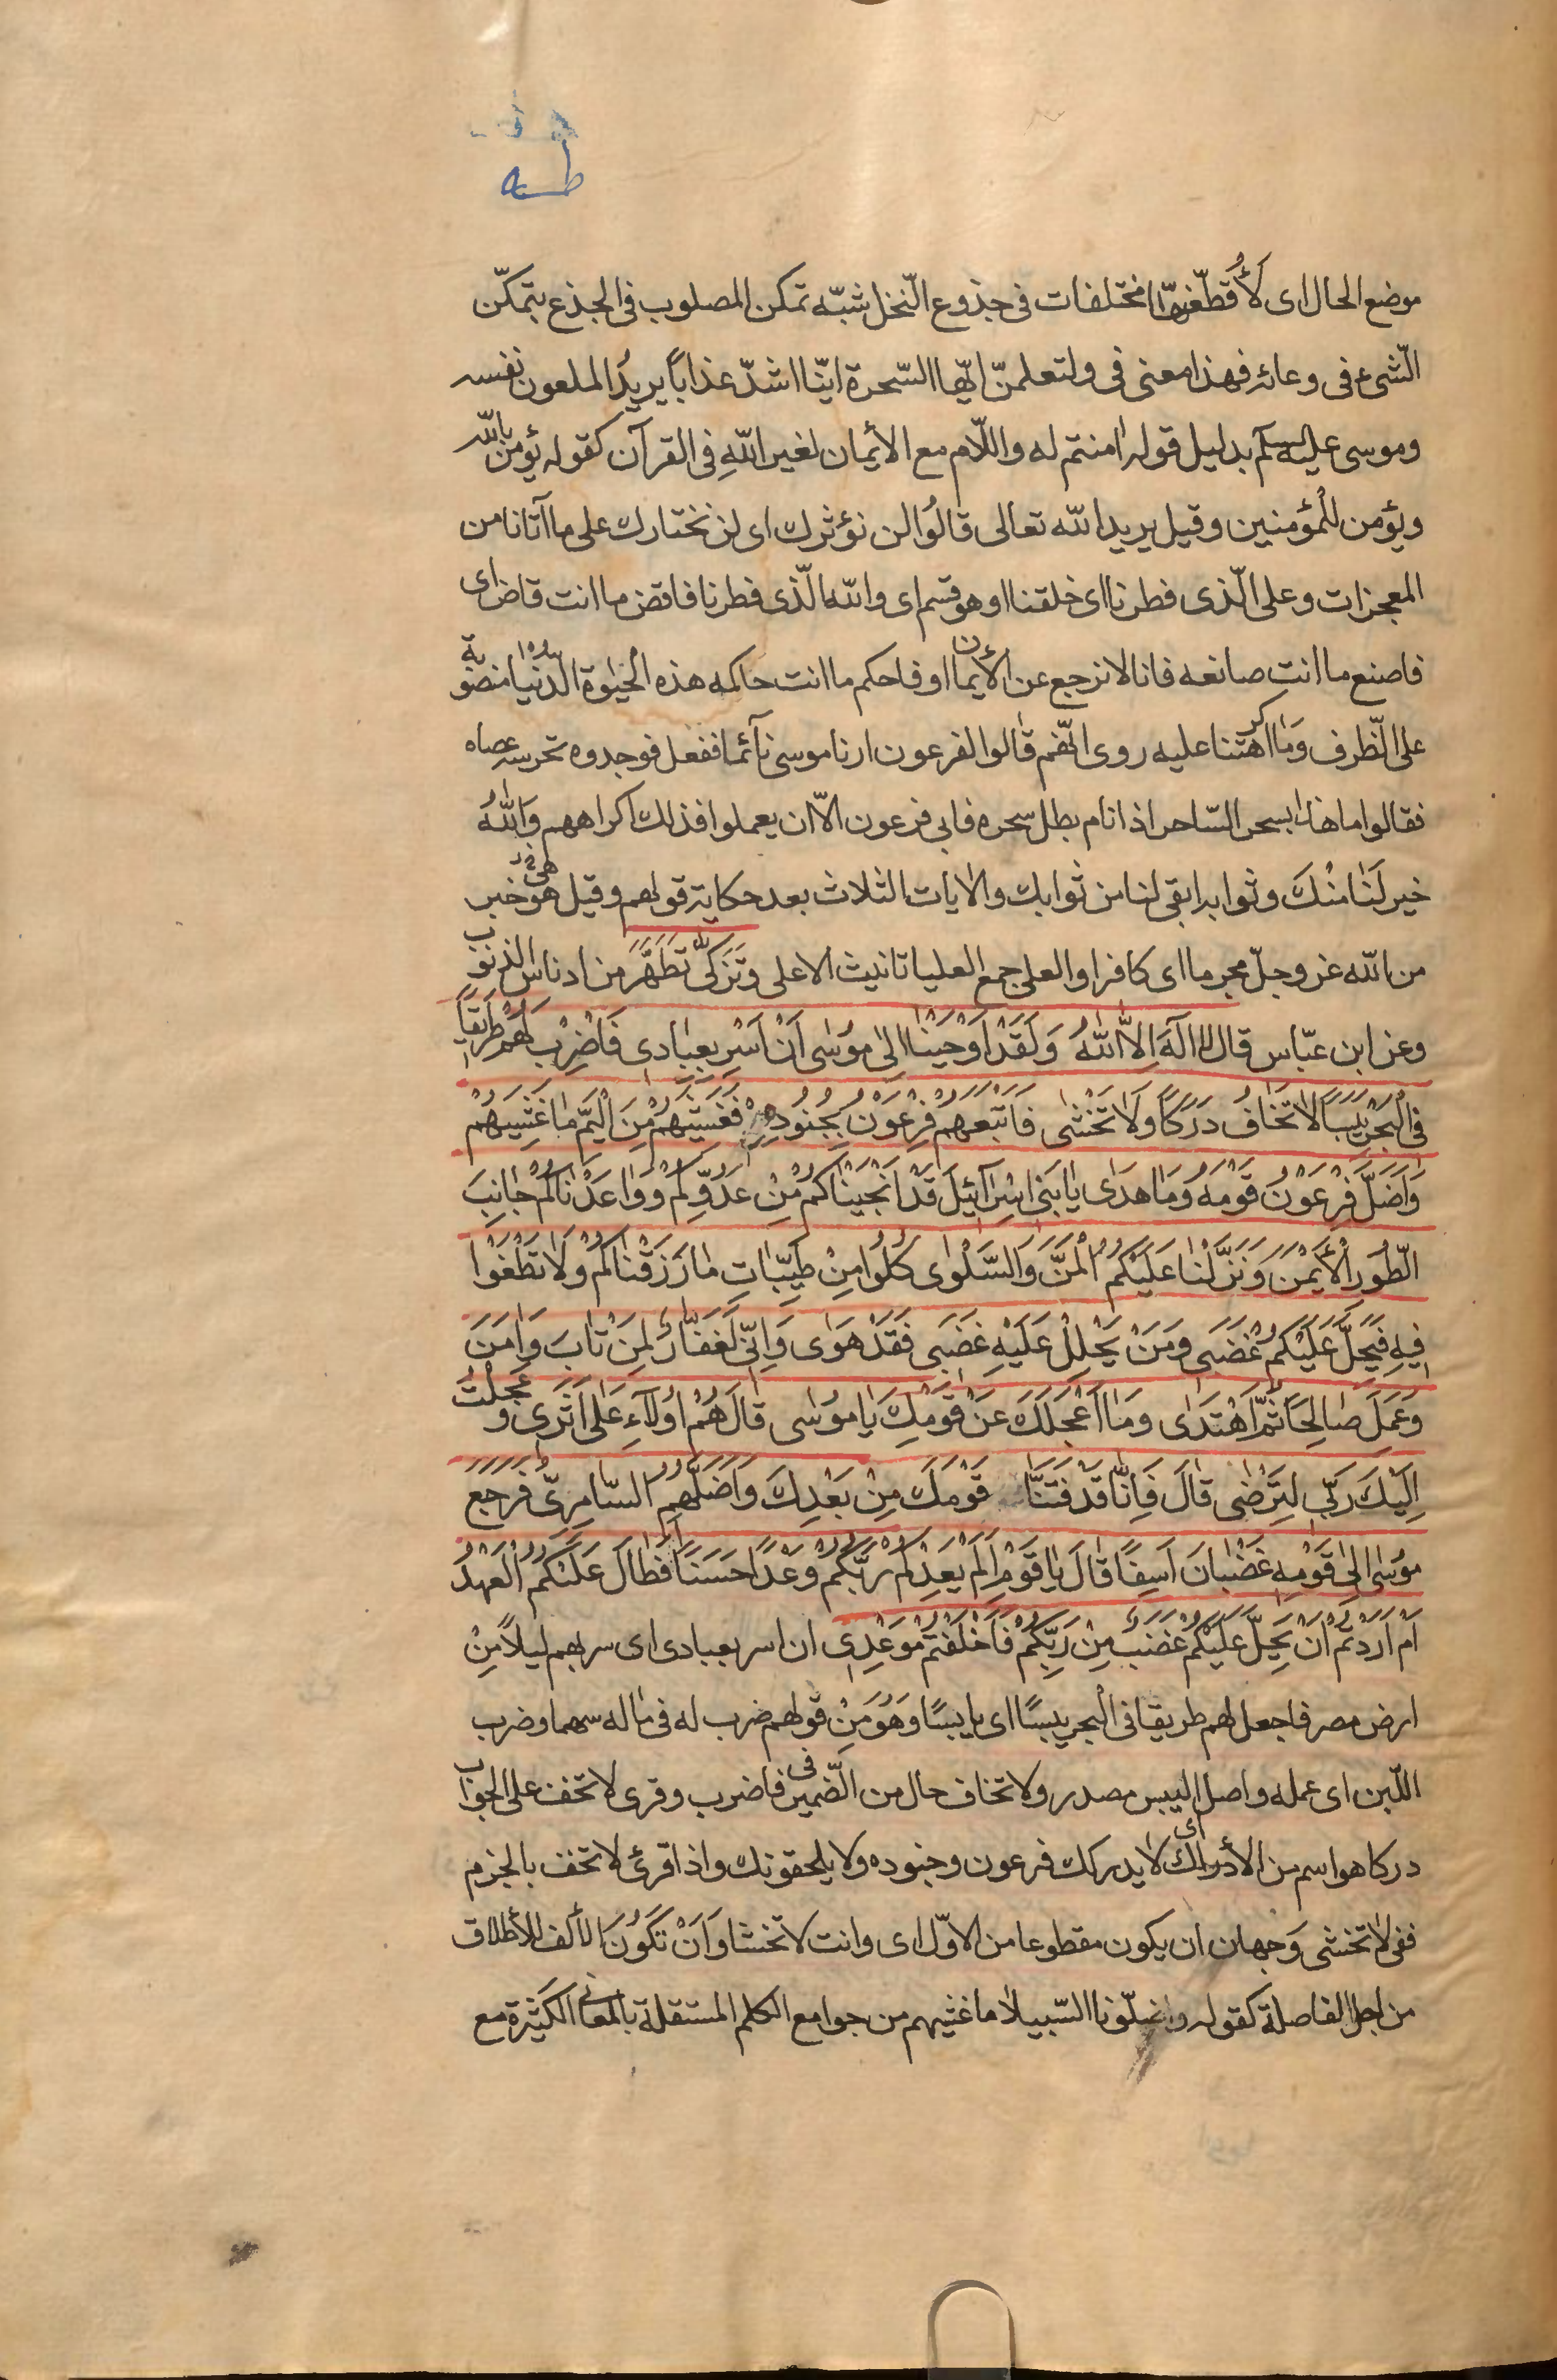 طه
موضع الحال اى لَأُقطّعنها مختلفات فى جذوع النّخل شبّه تمكن المصلوب فى الجذع بتمكّن
الشّىء فى وعائه فهذا معنى فى ولتعلمنّ ايّها السّحرة ايّنا اشدّ عذاباً يريدُ الملعون نفسه
وموسى عليه السلم بدليل قوله اٰمنتم له واللّام مع الأيمان لغير اللهِ فى القرآن كقوله يؤمن بالله
ويؤمن للمؤمنين وقيل يريد الله تعالى قالوُا لن نؤثرك اى لن نختارك على ما آتانا من
المعجزات وعلى الّذى فطرنا اى خلقنا او هو قسم اى والله الّذى فطرنا فاقض ما انت قاض اى
فاصنع ما انت صانعه فانا لا نرجع عن الأيمان او فاحكم ما انت حاكمه هذه الحيٰوة الدّنيا منصوبة
على الظّرف وَمٰا اكرهتنا عليه روى انّهم قٰالوا لفرعون ارنا موسى نآئما ففعل فوجدوه تحرسه عصاه
فقالوا ما هذا بسحر السّاحر اذا نام بطل سحره فابى فرعون الاّ ان يعملوا فذلك اكراههم وَاللهُ
خير لَنٰا منْكَ وثوابه ابقى لنا من ثوابك والاٰيات الثلاث بعد حكاية قولهم وقيل هى خبر
من الله عز وجلّ مجرما اى كافرا والعلى جمع العليا تانيث الاعلى وَتَزَكّٰى تَطَهَّرَ من ادناس الذنوب
وعن ابن عبّاس قال لا الٰهَ اِلاَّ اللهُ وَلَقَدْ اَوْحَيْنٰا اِلىٰ موُسٰى اَنْ اَسْرِ بِعِبٰادى فَاضْرِبْ لَهُمْ طَريقًا
فِى الْبَحْرِ يَبَسًا لاٰ تَخٰافُ دَرَكًا وَلاٰ تَخْشٰى فَاَتْبَعَهُمْ فِرْعَوْنُ بِجُنُودِهِ فَغَشِيَهُمْ مِنَ الْيَمِّ مٰا غَشِيَهُمْ
وَاَضَلَّ فِرْعَوْنُ قَوْمَهُ وَمٰا هَدٰى يٰا بَنى اِسْرآئيلَ قَدْ اَنْجَيْنٰاكُمْ مِنْ عَدُوِّكُمْ وَوٰاعَدْنٰاكُمْ جٰانِبَ
الطّوُرِ الْأَيْمَنَ وَنَزَّلْنٰا عَلَيْكُمُ الْمَنَّ وَالسَّلْوٰى كُلوُا مِنْ طَيِّبٰاتِ مٰا رَزَقْنٰاكُمْ وَلاٰ تَطْغَوْا
فيهِ فَيَحِلَّ عَلَيْكُمْ غَضَبى وَمَنْ يَحْلِلْ عَلَيْهِ غَضَبى فَقَدْ هَوٰى وَاِنّى لَغَفّٰارٌ لِمَنْ تٰابَ وَاٰمَنَ
وَعَمِلَ صٰالِحًا ثُمَّ اهْتَدٰى وَمٰا اَعْجَلَكَ عَنْ قَوْمِكَ يٰا موُسٰى قٰالَ هُمْ اوُلآءِ عَلٰى اَثَرى وَعَجِلْتُ
اِلَيْكَ رَبِّ لِتَرْضٰى قٰالَ فَاِنّٰا قَدْ فَتَنَّا قَوْمَكَ مِنْ بَعْدِكَ وَاَضَلَّهُمُ السّٰامِرِىُّ فَرَجَعَ
موُسٰى اِلىٰ قَوْمِهِ غَضْبٰانَ اَسِفًا قٰالَ يٰا قَوْمِ اَلَمْ يَعِدْكُمْ رَبُّكُمْ وَعْدًا حَسَنًا اَفَطٰالَ عَلَيْكُمُ الْعَهْدُ
اَمْ اَرَدْتُمْ اَنْ يَحِلَّ عَلَيْكُمْ غَضَبٌ مِنْ رَبِّكُمْ فَاَخْلَفْتُمْ مَوْعِدى ان اسر بعبادى اى سر بهم ليلاً مِنْ
ارض مصر فاجعل لهم طريقا فى البحر يبسًا اى يابسًا وَهُوَ مِنْ قولهم ضرب له فى مٰاله سهما وضرب
اللّبن اى عمله واصل اليبس مصدر ولا تخاف حال من الضّمير فى فاضرب وقرى لا تخف على الجواب
دركا هو اسم من الأدراك اى لا يدركك فرعون وجنوده ولا يلحقونك واذا قرئ لا تخف بالجزم
ففى لا تخشى وَجهان ان يكون مقطوعا من الاوّل اى وانت لا تخشا وَاَنْ تَكوُنَ الألف للأطلاق
من اجل الفاصلة كقوله واضلّونا السّبيلا ما غشيهم من جوامع الكلم المستقلة بالمعانى الكثيرة مع